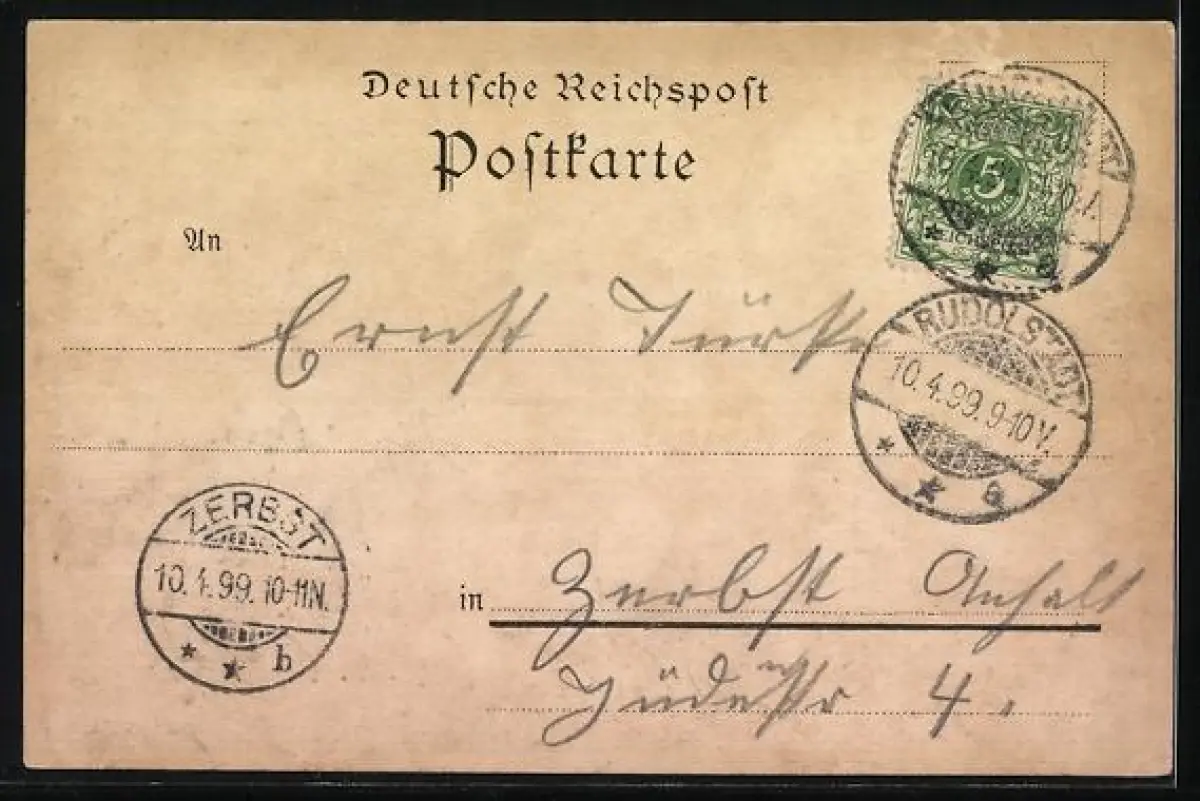 Deutsche Reichspost
Postkarte
An
5
Ernst Türke
RUDOLSTADT
10.4.99.9-10V.
* * a
ZERBST
10.4.99.10-11N.
* * b
in Zerbst Anhalt
4.